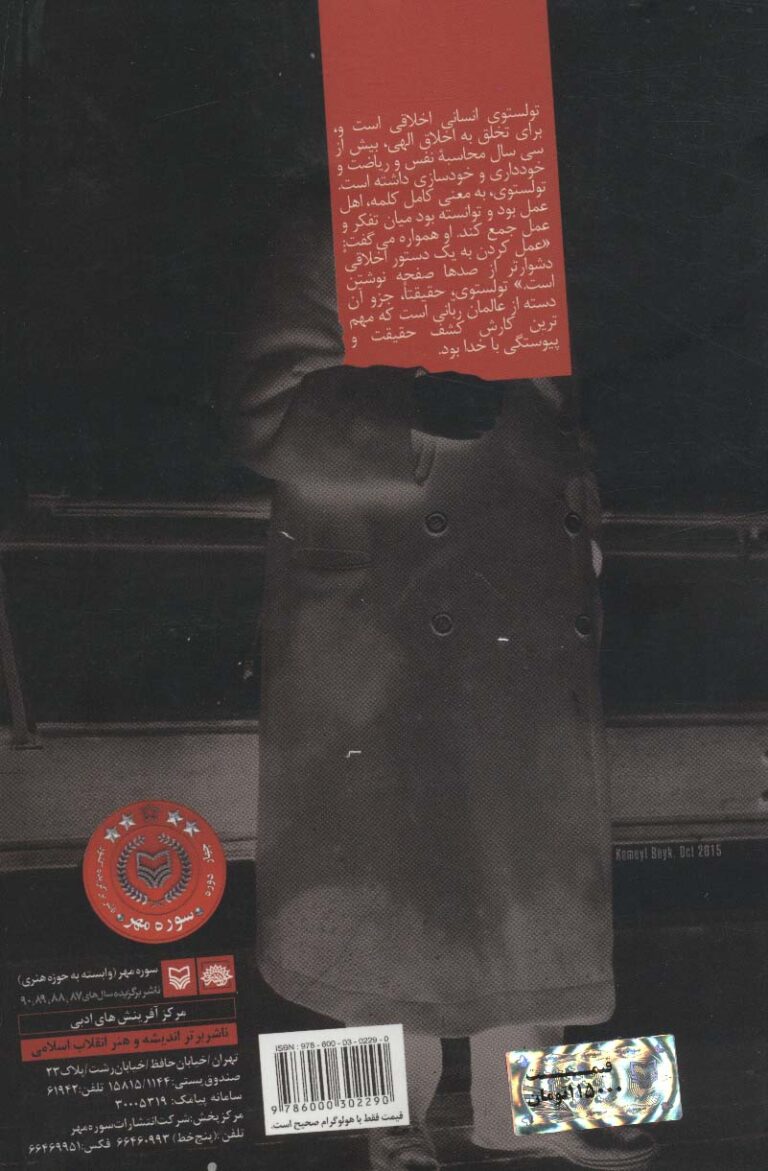 تولستوی انسانی اخلاقی است و،
برای تخلق به اخلاق الهی، بیش از
سی سال محاسبهٔ نفس و ریاضت و
خودداری و خودسازی داشته است.
تولستوی، به معنی کامل کلمه، اهل
عمل بود و توانسته بود میان تفکر و
عمل جمع کند. او همواره می گفت:
«عمل کردن به یک دستور اخلاقی
دشوارتر از صدها صفحه نوشتن
است.» تولستوی، حقیقتاً، جزو آن
دسته از عالمان ربانی است که مهم
ترین کارش کشف حقیقت و
پیوستگی با خدا بود.
Komeyl Beyk. Oct 2015
چهار دوره
سوره مهر
سوره مهر (وابسته به حوزه هنری)
ناشر برگزیده سال‌های ۸۷، ۸۸، ۸۹، ۹۰
مرکز آفرینش های ادبی
ناشر برتر اندیشه و هنر انقلاب اسلامی
تهران/خیابان حافظ/خیابان رشت/پلاک ۲۳
صندوق پستی: ۱۵۸۱۵/۱۱۴۴ تلفن: ۶۱۹۴۲
سامانه پیامک: ۳۰۰۰۵۳۱۹
مرکز پخش: شرکت انتشارات سوره مهر
تلفن: (پنج خط) ۶۶۴۶۰۹۹۳ فکس: ۶۶۴۶۹۹۵۱
ISBN: 978-600-03-0229-0
9 786000 302290
قیمت فقط با هولوگرام صحیح است.
قیمت
۱۱۵۰۰۰تومان